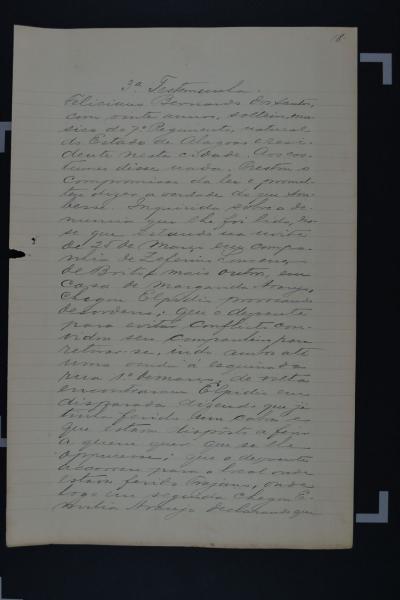 18
3ª Testemunha.
Feliciano Bernardo dos Santos,
com vinte annos, solteiro, mu-
sico do 7º Regimento, natural
do Estado de Alagoas e resi-
dente nesta cidade. Aos cos-
tumes disse nada. Prestou o
compromisso da lei e prometteu
dizer a verdade do que sou-
besse. Inquirido sobre a de-
nuncia que lhe foi lida, dis-
se que estando na noite
de 25 de Março em compa-
nhia de Zeferino
de Brito e mais outro, em
casa de Margarida Araujo,
chegou Elpidio provocando
desordens; que o depoente
para evitar conflicto con-
vidou seu companheiro para
retirar-se, indo ambos até
uma venda á esquina da
rua 1º de Março, de volta
encontraram Elpidio em
disparada dizendo que já
tinha ferido um cabra e
que estava disposto a ferir
a quem quer que se lhe
oppuzesse; que o depoente
 para o local onde
estava ferido Trajano, onde
logo em seguida chegou E-
 Araujo declarando que